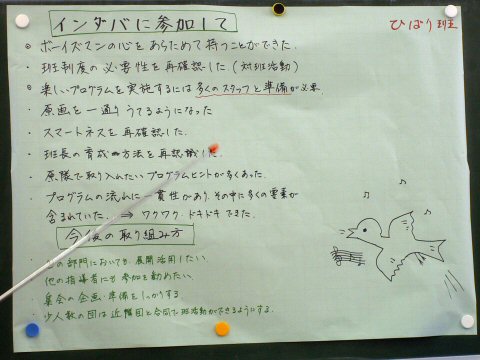 インダバに参加して
ひばり班
◎ ボーイズマンの心をあらためて持つことができた.
・ 班制度の必要性を再確認した(対班活動)
◎ 楽しいプログラムを実施するには多くのスタッフと準備が必要.
・ 原画を一通りうてるようになった
・ スマートネスを再確認した.
・ 班長の育成の方法を再認識した.
・ 原隊で取り入れたいプログラムヒントが多くあった.
・ プログラムの流れに一貫性があり,その中に多くの要素が
含まれていた... ⇒ ワクワク ドキドキできた.
今後の取り組み方
の部門においても,展開活用したい
他の指導者にも参加を勧めたい.
・ 集会の企画・準備をしっかりする
・ 少人数の団は近隣団と合同で班活動ができるようにする.